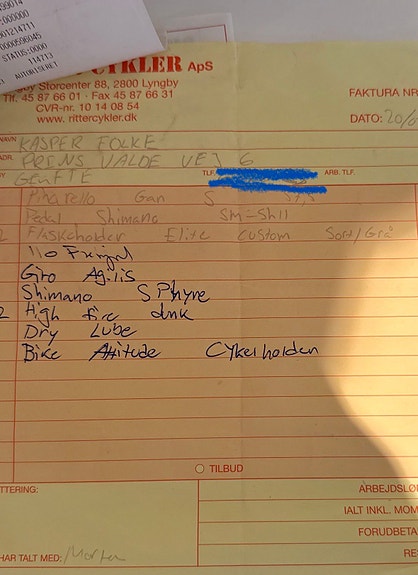 :000000
01214711
0000590045
STATUS:0000
114713
AUTORISERET
CYKLER ApS
Storcenter 88, 2800 Lyngby
Tlf. 45 87 66 01 · Fax 45 87 66 31
CVR-nr. 10 14 08 54
www.rittercykler.dk
FAKTURA NR
DATO: 20/6
NAVN KASPER FOLKE
ADR. PRINS VALDE VEJ 6
GENFTE TLF. ARB. TLF.
Pinarello Gan S 51,5
Pedal Shimano SM-SH11
2 Flaskeholder Elite Custom Sort/Grå
Giro Agilis
Shimano S Phyre
2 High five drink
Dry Lube
Bike Attitude Cykelholder
TILBUD
TTERING:
ARBEJDSLØ
IALT INKL. MOM
FORUDBETA
RE
HAR TALT MED: Morten